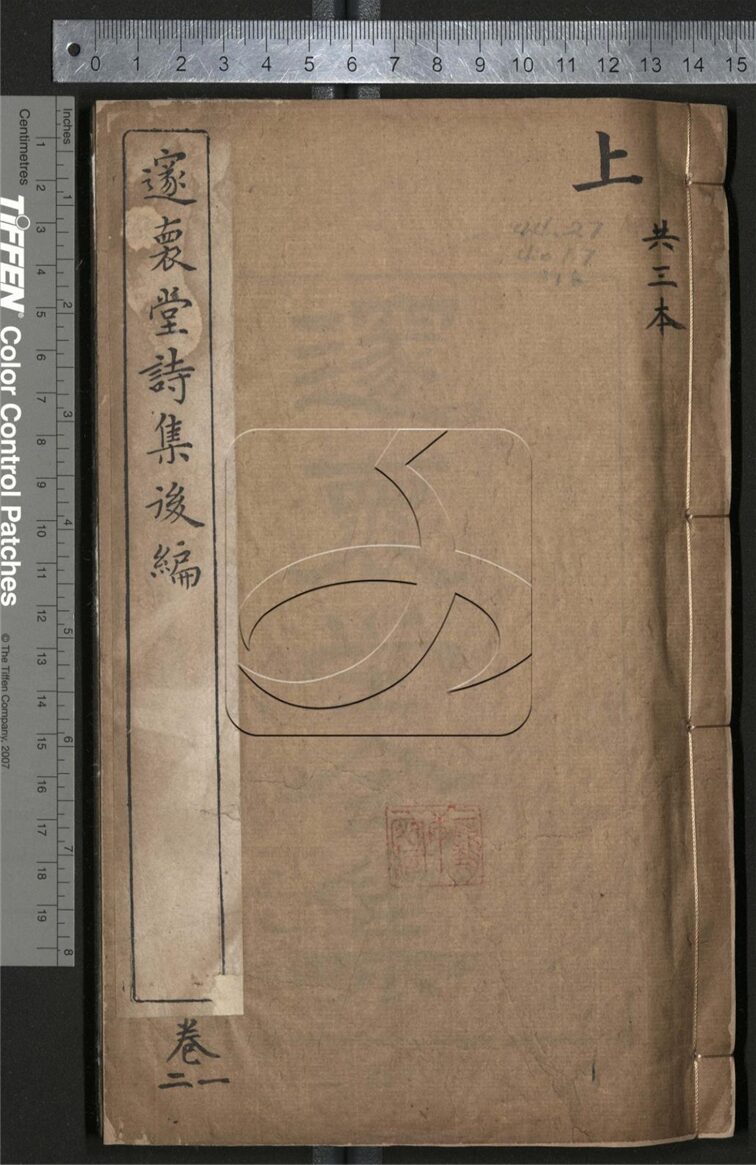 0 1 2 3 4 5 6 7 8 9 10 11 12 13 14 15
上
共三本
邃裏堂詩集後編
卷
一
二
Inches
1 2 3 4 5 6 7 8
Centimetres
1 2 3 4 5 6 7 8 9 10 11 12 13 14 15 16 17 18 19
TIFFEN® Color Control Patches
© The Tiffen Company, 2007